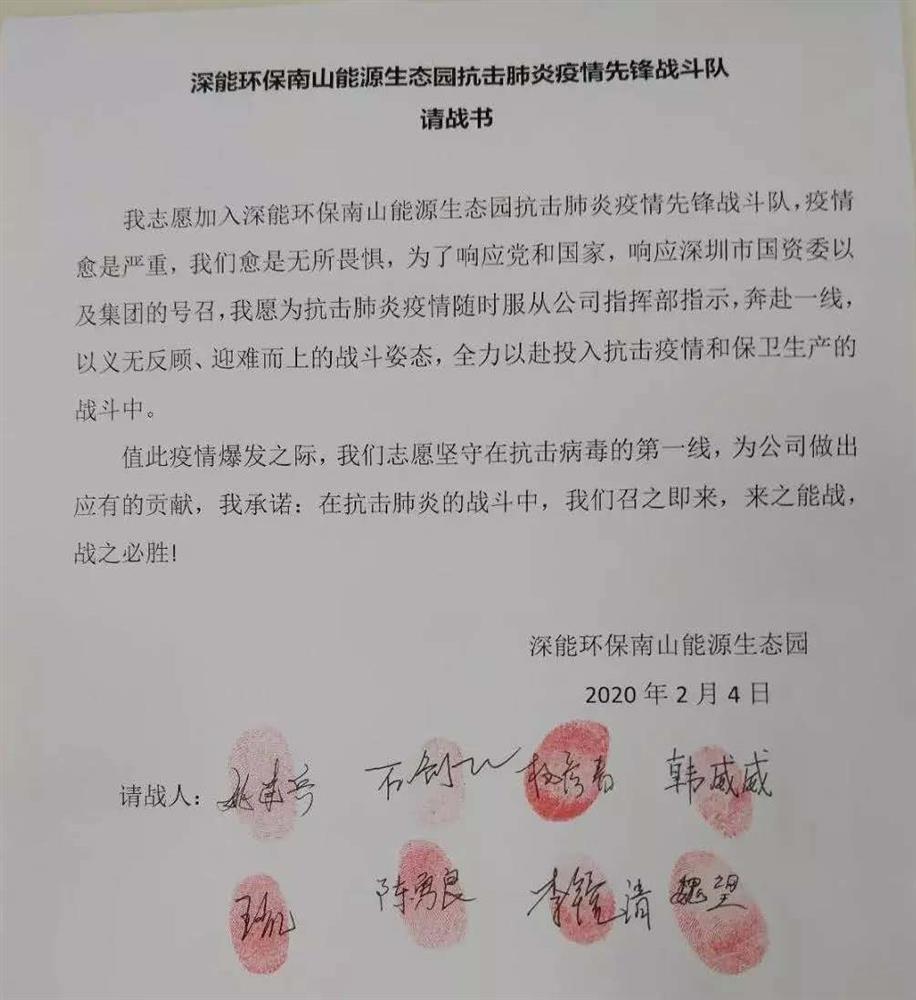 深能环保南山能源生态园抗击肺炎疫情先锋战斗队
请战书
我志愿加入深能环保南山能源生态园抗击肺炎疫情先锋战斗队，疫情
愈是严重，我们愈是无所畏惧，为了响应党和国家，响应深圳市国资委以
及集团的号召，我愿为抗击肺炎疫情随时服从公司指挥部指示，奔赴一线，
以义无反顾、迎难而上的战斗姿态，全力以赴投入抗击疫情和保卫生产的
战斗中。
值此疫情爆发之际，我们志愿坚守在抗击病毒的第一线，为公司做出
应有的贡献，我承诺：在抗击肺炎的战斗中，我们召之即来，来之能战，
战之必胜！
深能环保南山能源生态园
2020 年 2 月 4 日
请战人： 韩威威
陈勇良 魏望